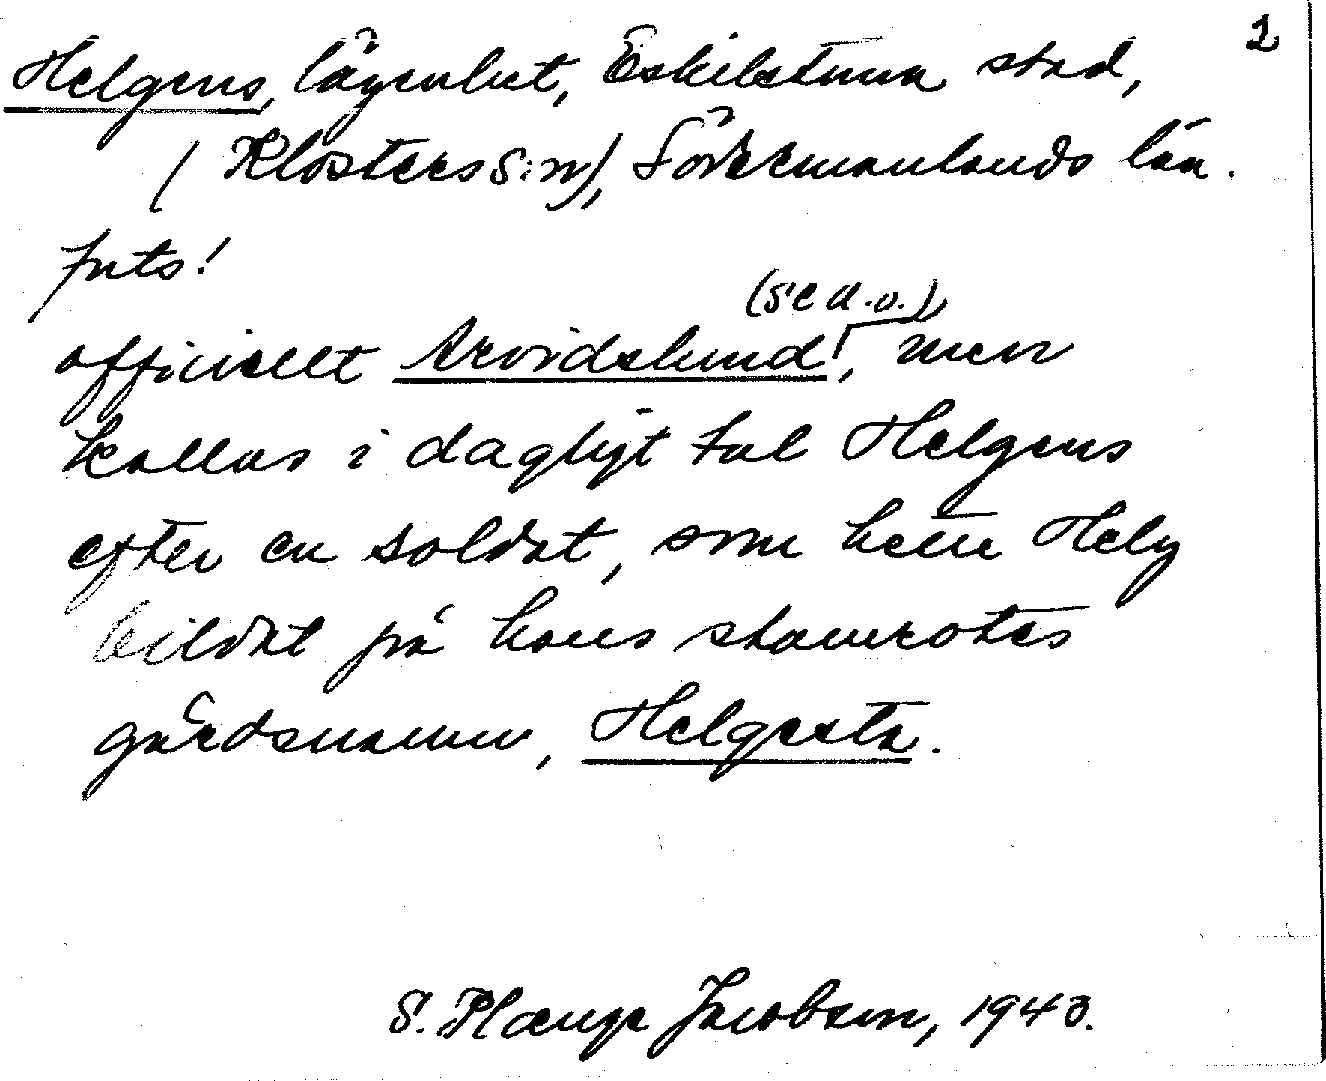 2
Helgens, lägenhet, Eskilstuna stad,
(Klosters S:n), Södermanlands län.
Juts!
(se d.o.)
officiellt Arvidslund, men
kallas i dagligt tal Helgens
efter en soldat, som hette Helg
bildat på hans stamrotes
gårdsnamn, Helgesta.
S. Jacobsen, 1943.